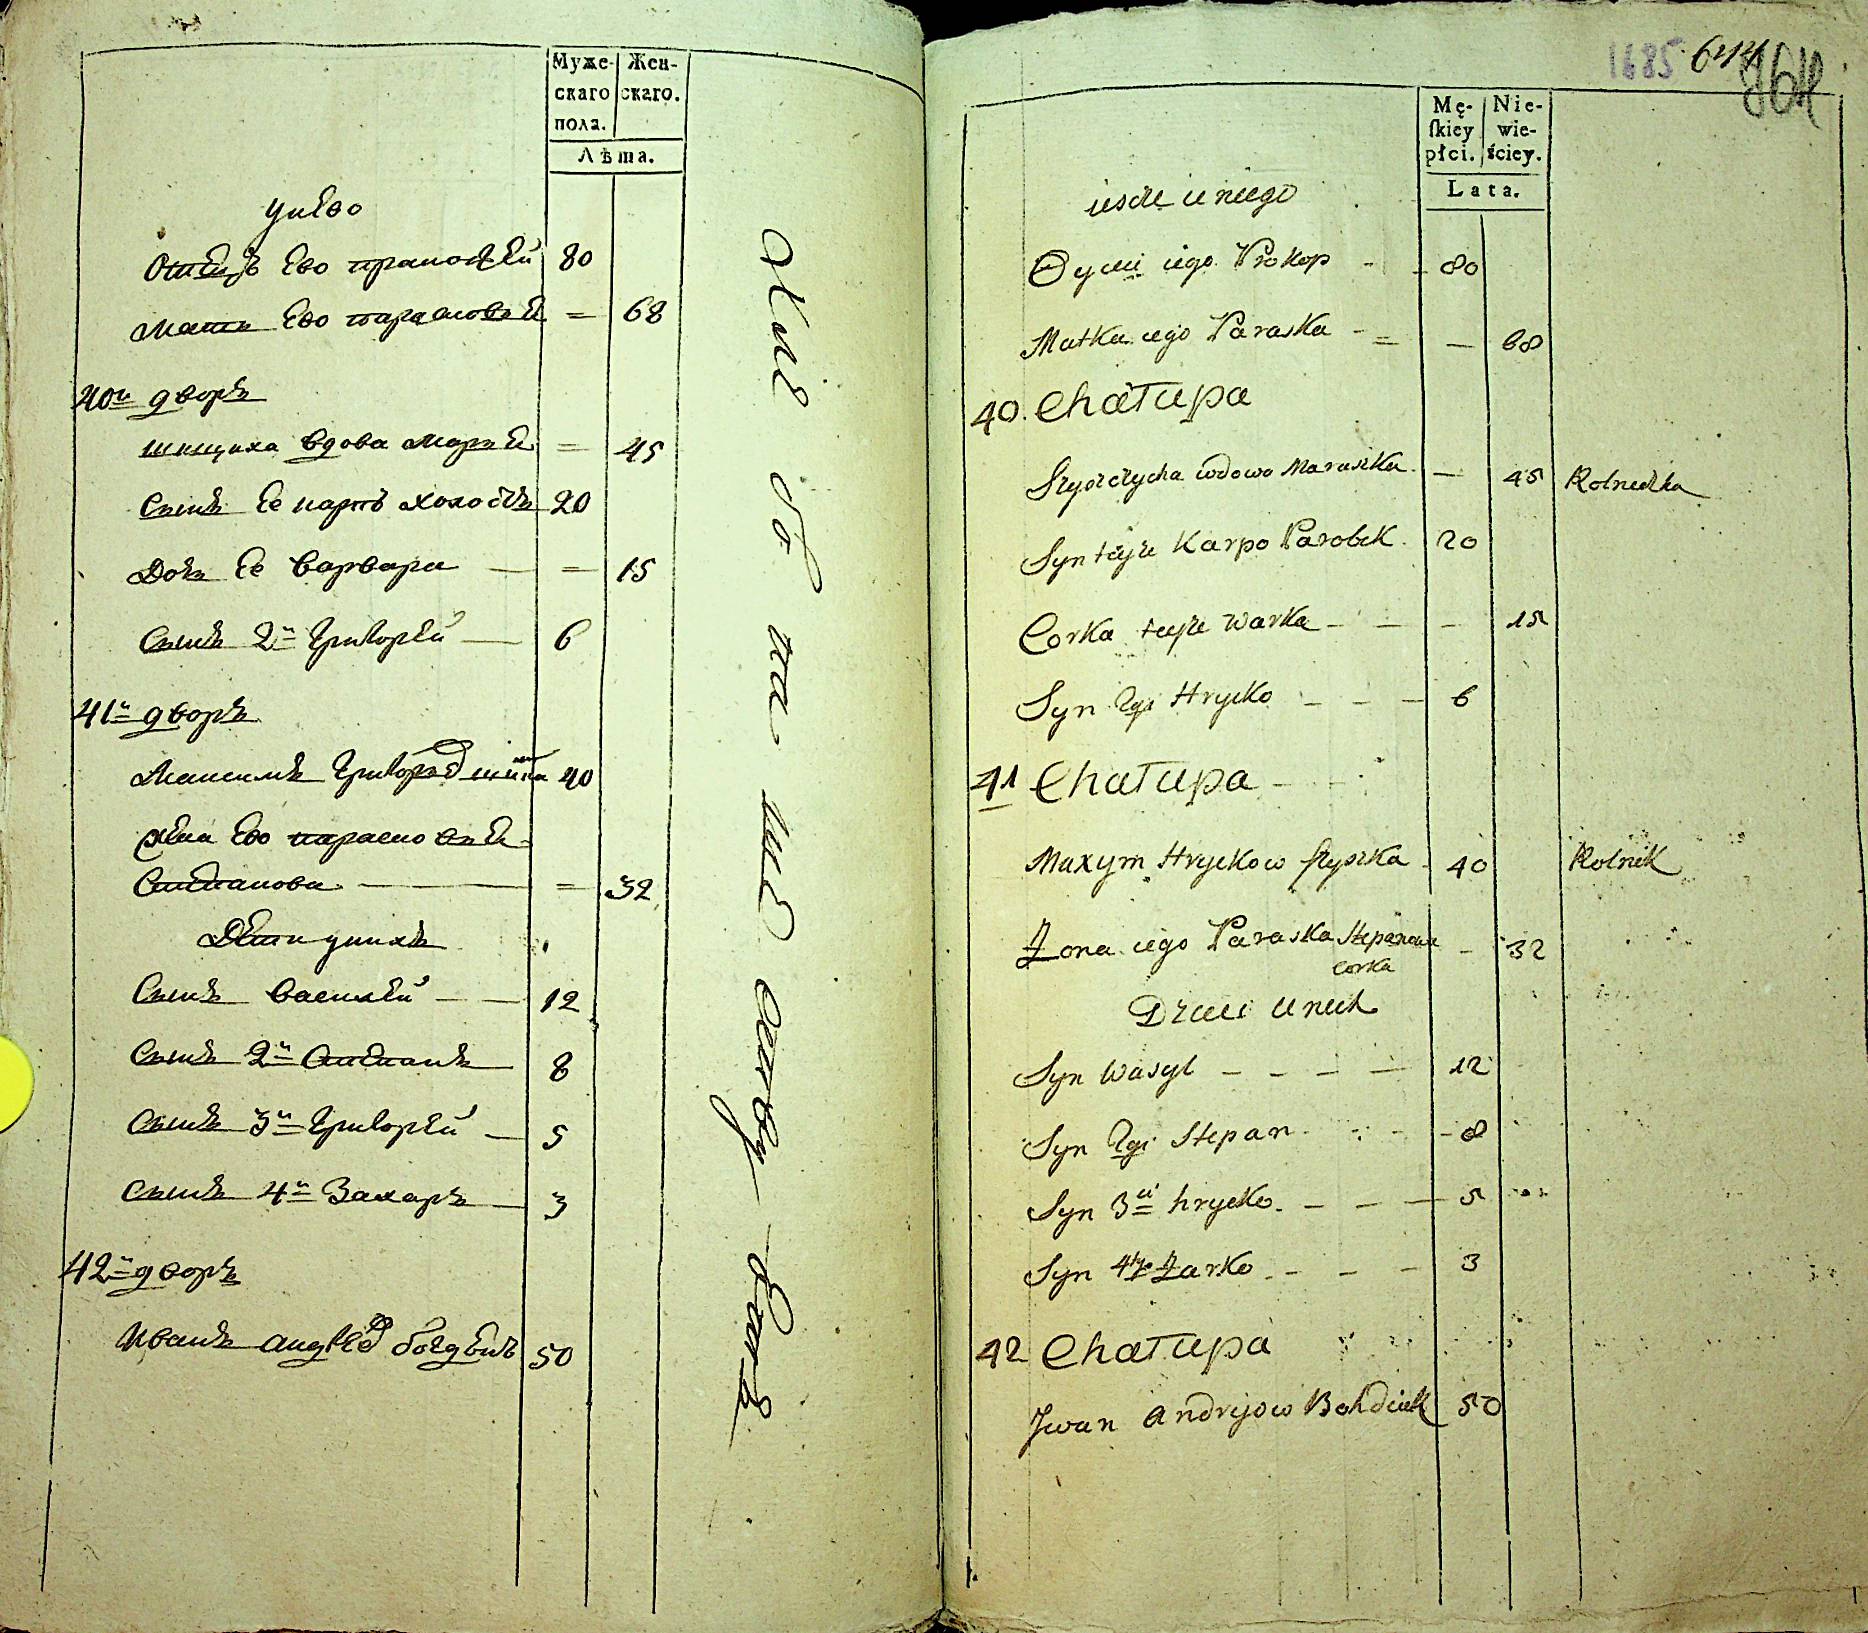 Муже- Жен-
скаго скаго.
пола.
Лѣта.
у него
Отецъ Ево прокофей 80
мать Ево парасковея = 68
40й дворъ
вдова Марья = 45
Сынъ Ее карпъ холостъ 20
Дочь Ее Варвара — = 15
Сынъ 2й Григорей — 6
41й дворъ
Максимъ Григорьевъ 40
жена Ево парасковея
Степанова — = 32
Дети у нихъ
Сынъ Василей — 12
Сынъ 2й Степанъ 8
Сынъ 3й Григорей — 5
Сынъ 4й Захаръ — 3
42й дворъ
Иванъ андреевъ 50
1685 644
Mę- Nie-
ſkiey wie-
płci. ściey.
Lata.
ieszcze u niego
Oyciec iego Prokop - - 80
Matka iego Paraska - = — 68
40. Chałupa
wdowa Maruszka — 45 Rolniczka
Syn teyże Karpo Parobek 20
Corka teyże Warka - - - 15
Syn 2gi Hrycko - - - 6
41 Chałupa -
Maxym Hryckow Szyszka 40 Rolnik
Żona iego Paraska Stepanowa - 32
corka
Dzieci u nich
Syn Wasyl - - - - 12
Syn 2gi Stepan - 8
Syn 3ci hrycko - - - 5
Syn 4ty Zarko - - - 3
42 Chałupa
Jwan Andryiow 50